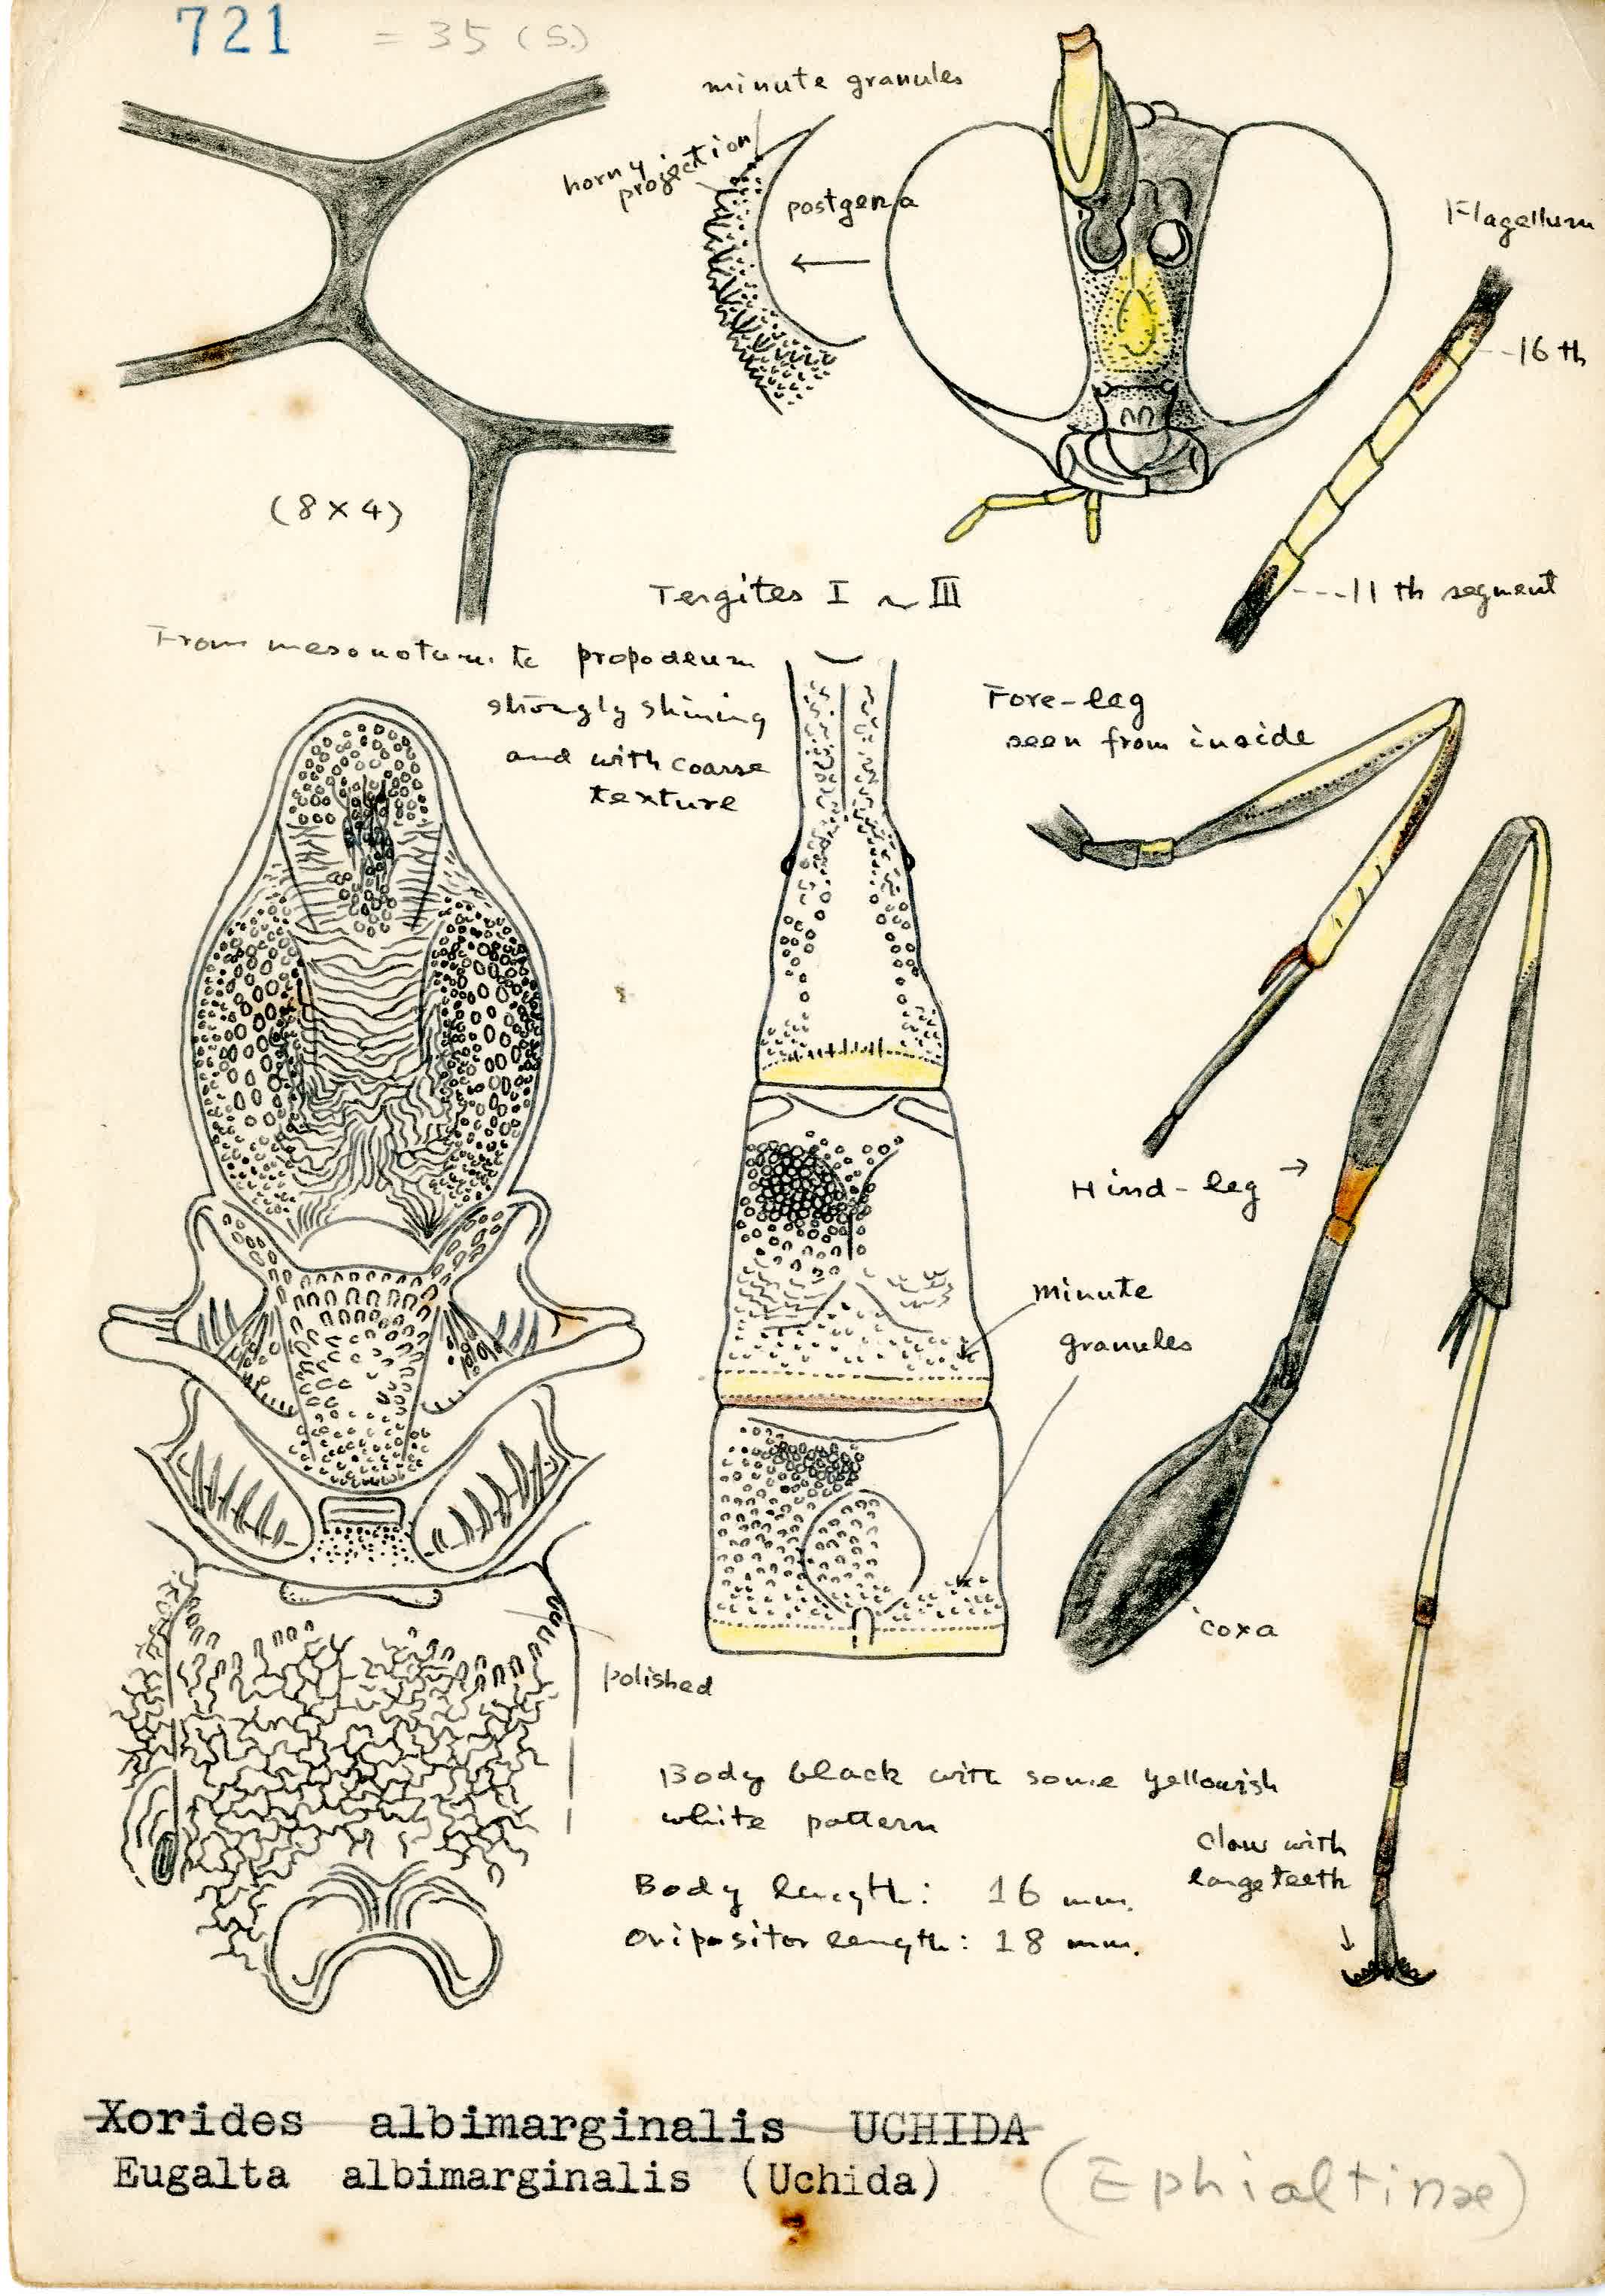 721 = 35 (S.)
minute granules
horny
projection
postgena
Flagellum
16 th
11 th segment
(8 X 4)
Tergites I ~ III
From mesonotum to propodeum
strongly shining
and with coarse
texture
Fore-leg
seen from inside
Hind-leg
minute
granules
coxa
polished
Body black with some yellowish
white pattern
Claw with
large teeth
Body length: 16 mm.
Ovipositor length: 18 mm.
Xorides albimarginalis UCHIDA
Eugalta albimarginalis (Uchida)
(Ephialtinae)